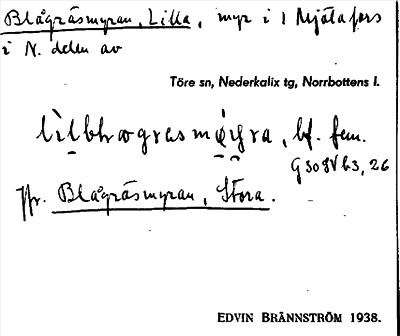 Blågräsmyran, Lilla, myr i 1 Mjölafors
i N. delen av
Töre sn, Nederkalix tg, Norrbottens l.
bf. fem.
Jfr. Blågräsmyran, Stora.
EDVIN BRÄNNSTRÖM 1938.